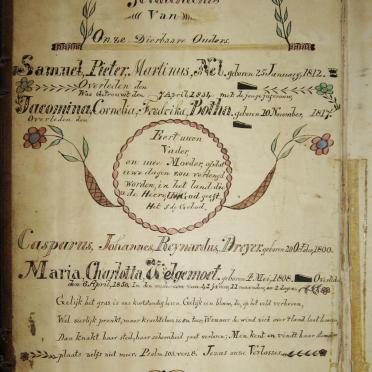 Van
Onze Dierbaare Ouders.
Samuel, Pieter, Martinus, Nel, geboren 25 January, 1812.
Overleden den
Was Getrouwt den 7 April 1834, met de jonge juffrouw,
Jacomina, Cornelia, Fredrika, Botha, geboren 10 November, 1817.
Overleden den
Eert uwen
Vader,
en uwe Moeder, opdat
uwe dagen verlengd
worden, in het land die
u de Heere God geeft.
Het 5de Gebod.
Casparus, Johannes, Reynardus, Dreyer, geboren 28 October, 1800.
Maria, Charlotta, Welgemoet, geboren 4 Mei, 1808. Overleden
den 6 April, 1850, In den ouderdom van 41 jaren, 11 maanden, en 2 dagen.
Gelijk het gras is ons kortstondig leven. Gelijk een bloem, die, op het veld verheven,
Wel sierlijk pronkt, maar krachteloos is en teer; Wanneer de wind zich over 't land laat hooren,
Dan knakt haar steel, haar schoonheid gaat verloren; Men kent en vindt haar
plaats zelfs niet meer. Psalm 103. vers 8. Jesus onze Verlosser.